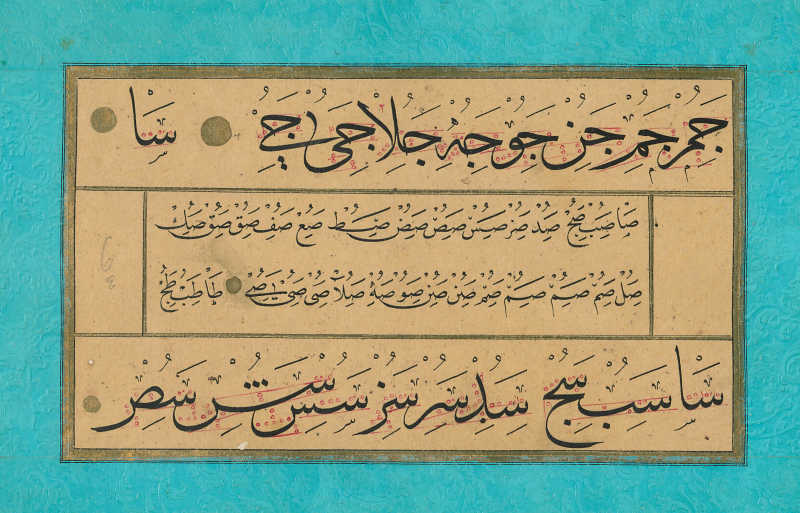 جم جم جن جو جه جلا جى جى سا
صا صب صج صد صر صس صص صص صط صع صف صق صق صك
صل صم صم صم صم صن صن صو صه صلا صى صى صى طا طب طج
سا سب سج سد سر سر سس سس سص